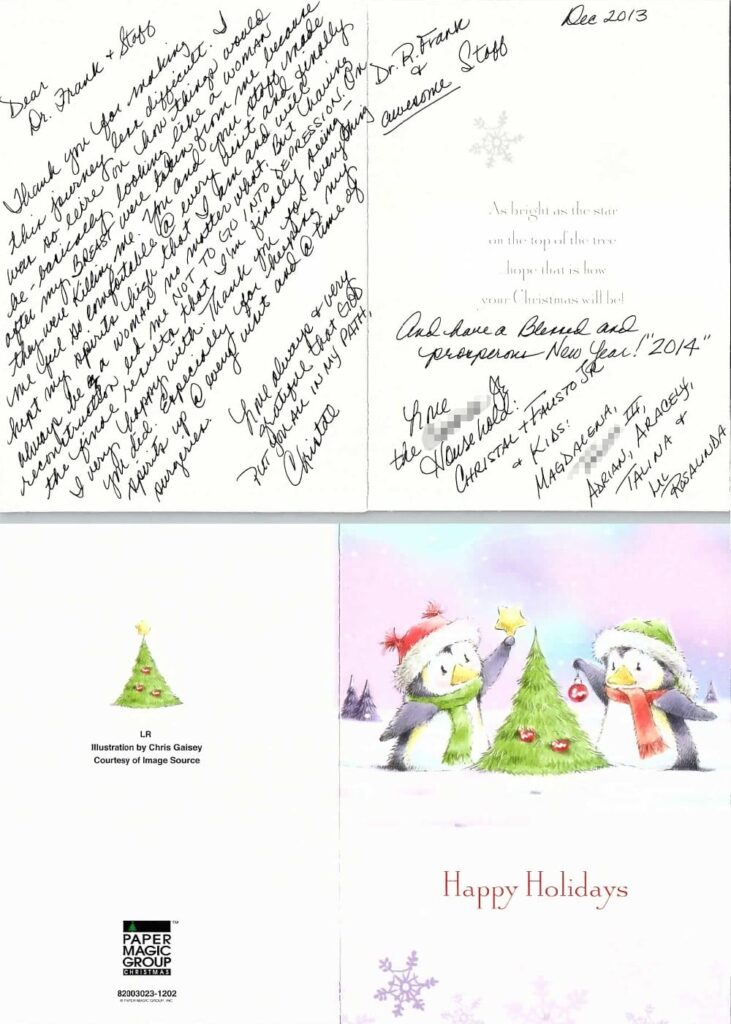 Dear
Dr. Frank & Staff
Thank you for making
this journey less difficult. I
was so on how things would
be, basically looking like a woman
after my BREAST were taken from me because
they were killing me. You and your staff made
me feel so comfortable @ every visit and finally
kept my spirits high that I am and will
always be a woman no matter what. But having
reconstruction led me NOT TO GO INTO DEPRESSION. On
the final results that I'm finally seeing –
I very happy with. Thank you for everything
you did. Especially for helping my
spirits up @ every visit and @ time of
surgeries.
Love always & very
grateful that GOD
PUT YOU ALL IN MY PATH,
Christal
Dec 2013
Dr. R. Frank
&
awesome Staff
As bright as the star
on the top of the tree
...hope that is how
your Christmas will be!
And have a Blessed and
prosperous New Year! "2014"
Love
the Jr.
Household:
CHRISTAL & FAUSTO JR
& KIDS:
MAGDALENA,
III,
ADRIAN, ARACELY,
TALINA &
LIL ROSALINDA
LR
Illustration by Chris Gaisey
Courtesy of Image Source
PAPER
MAGIC
GROUP
CHRISTMAS
™
82003023-1202
© PAPER MAGIC GROUP, INC.
Happy Holidays